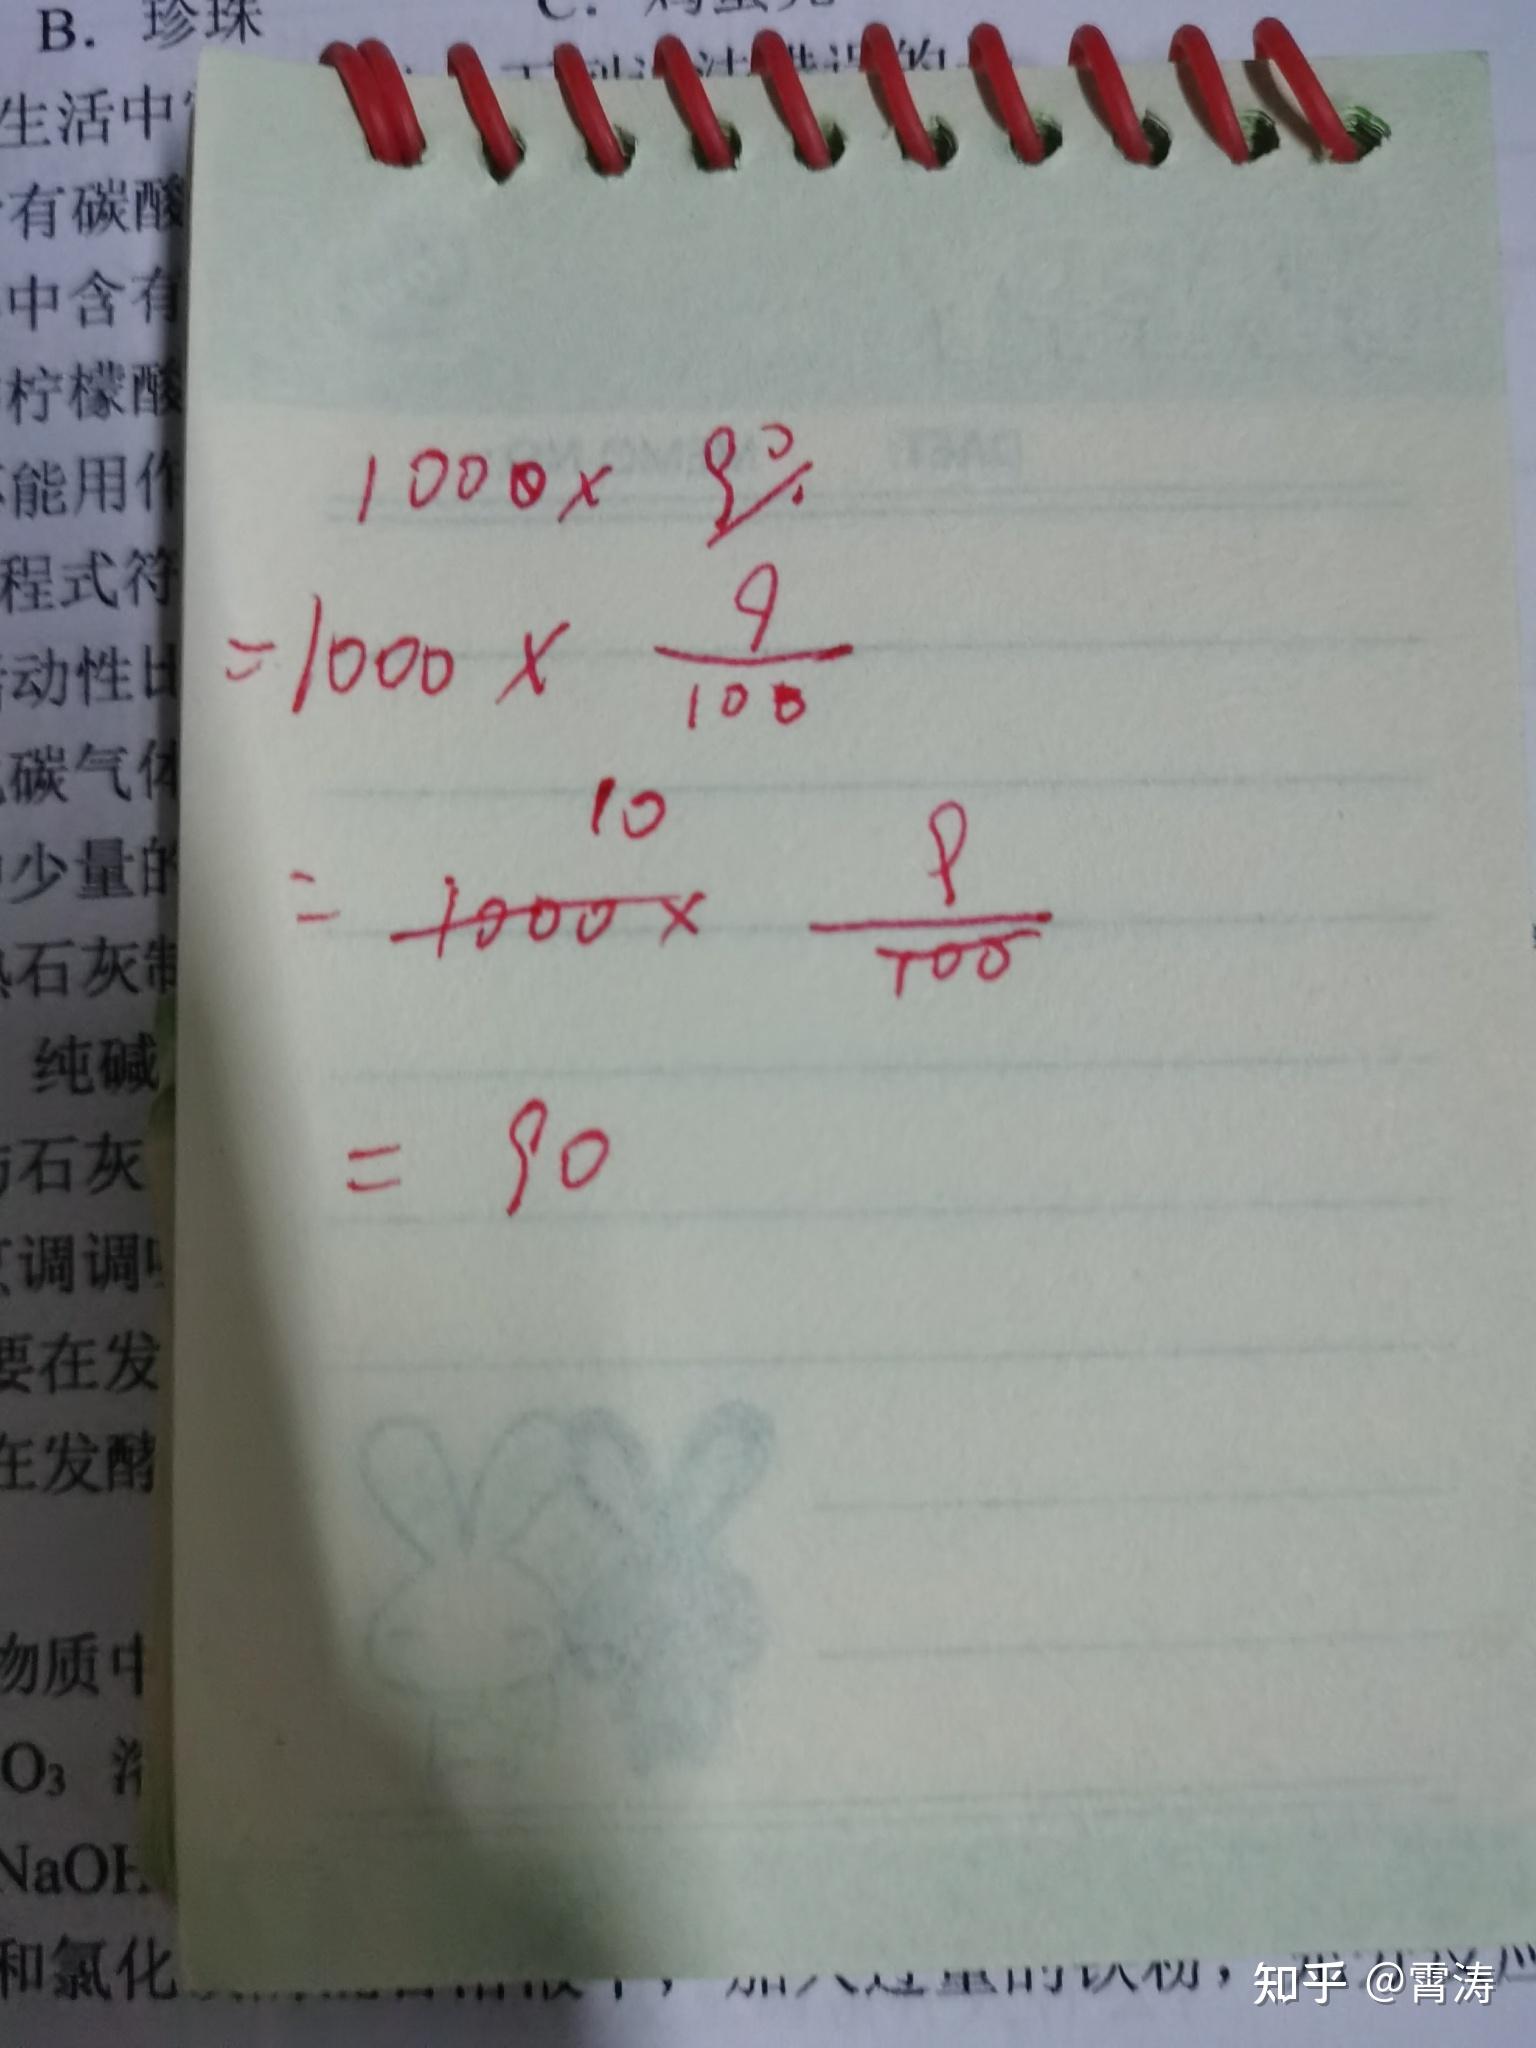 B. 珍珠
生活中
有碳酸
中含有
柠檬酸
能用作
程式符
动性比
碳气体
少量的
石灰制
纯碱
石灰
调调
要在发
在发酵
物质中
O₃ 溶
NaOH
和氯化
1000× 9%
=1000 × 9/100
10
= 1000 × 9/100
= 90
加入过量的铁粉，
知乎 @霄涛